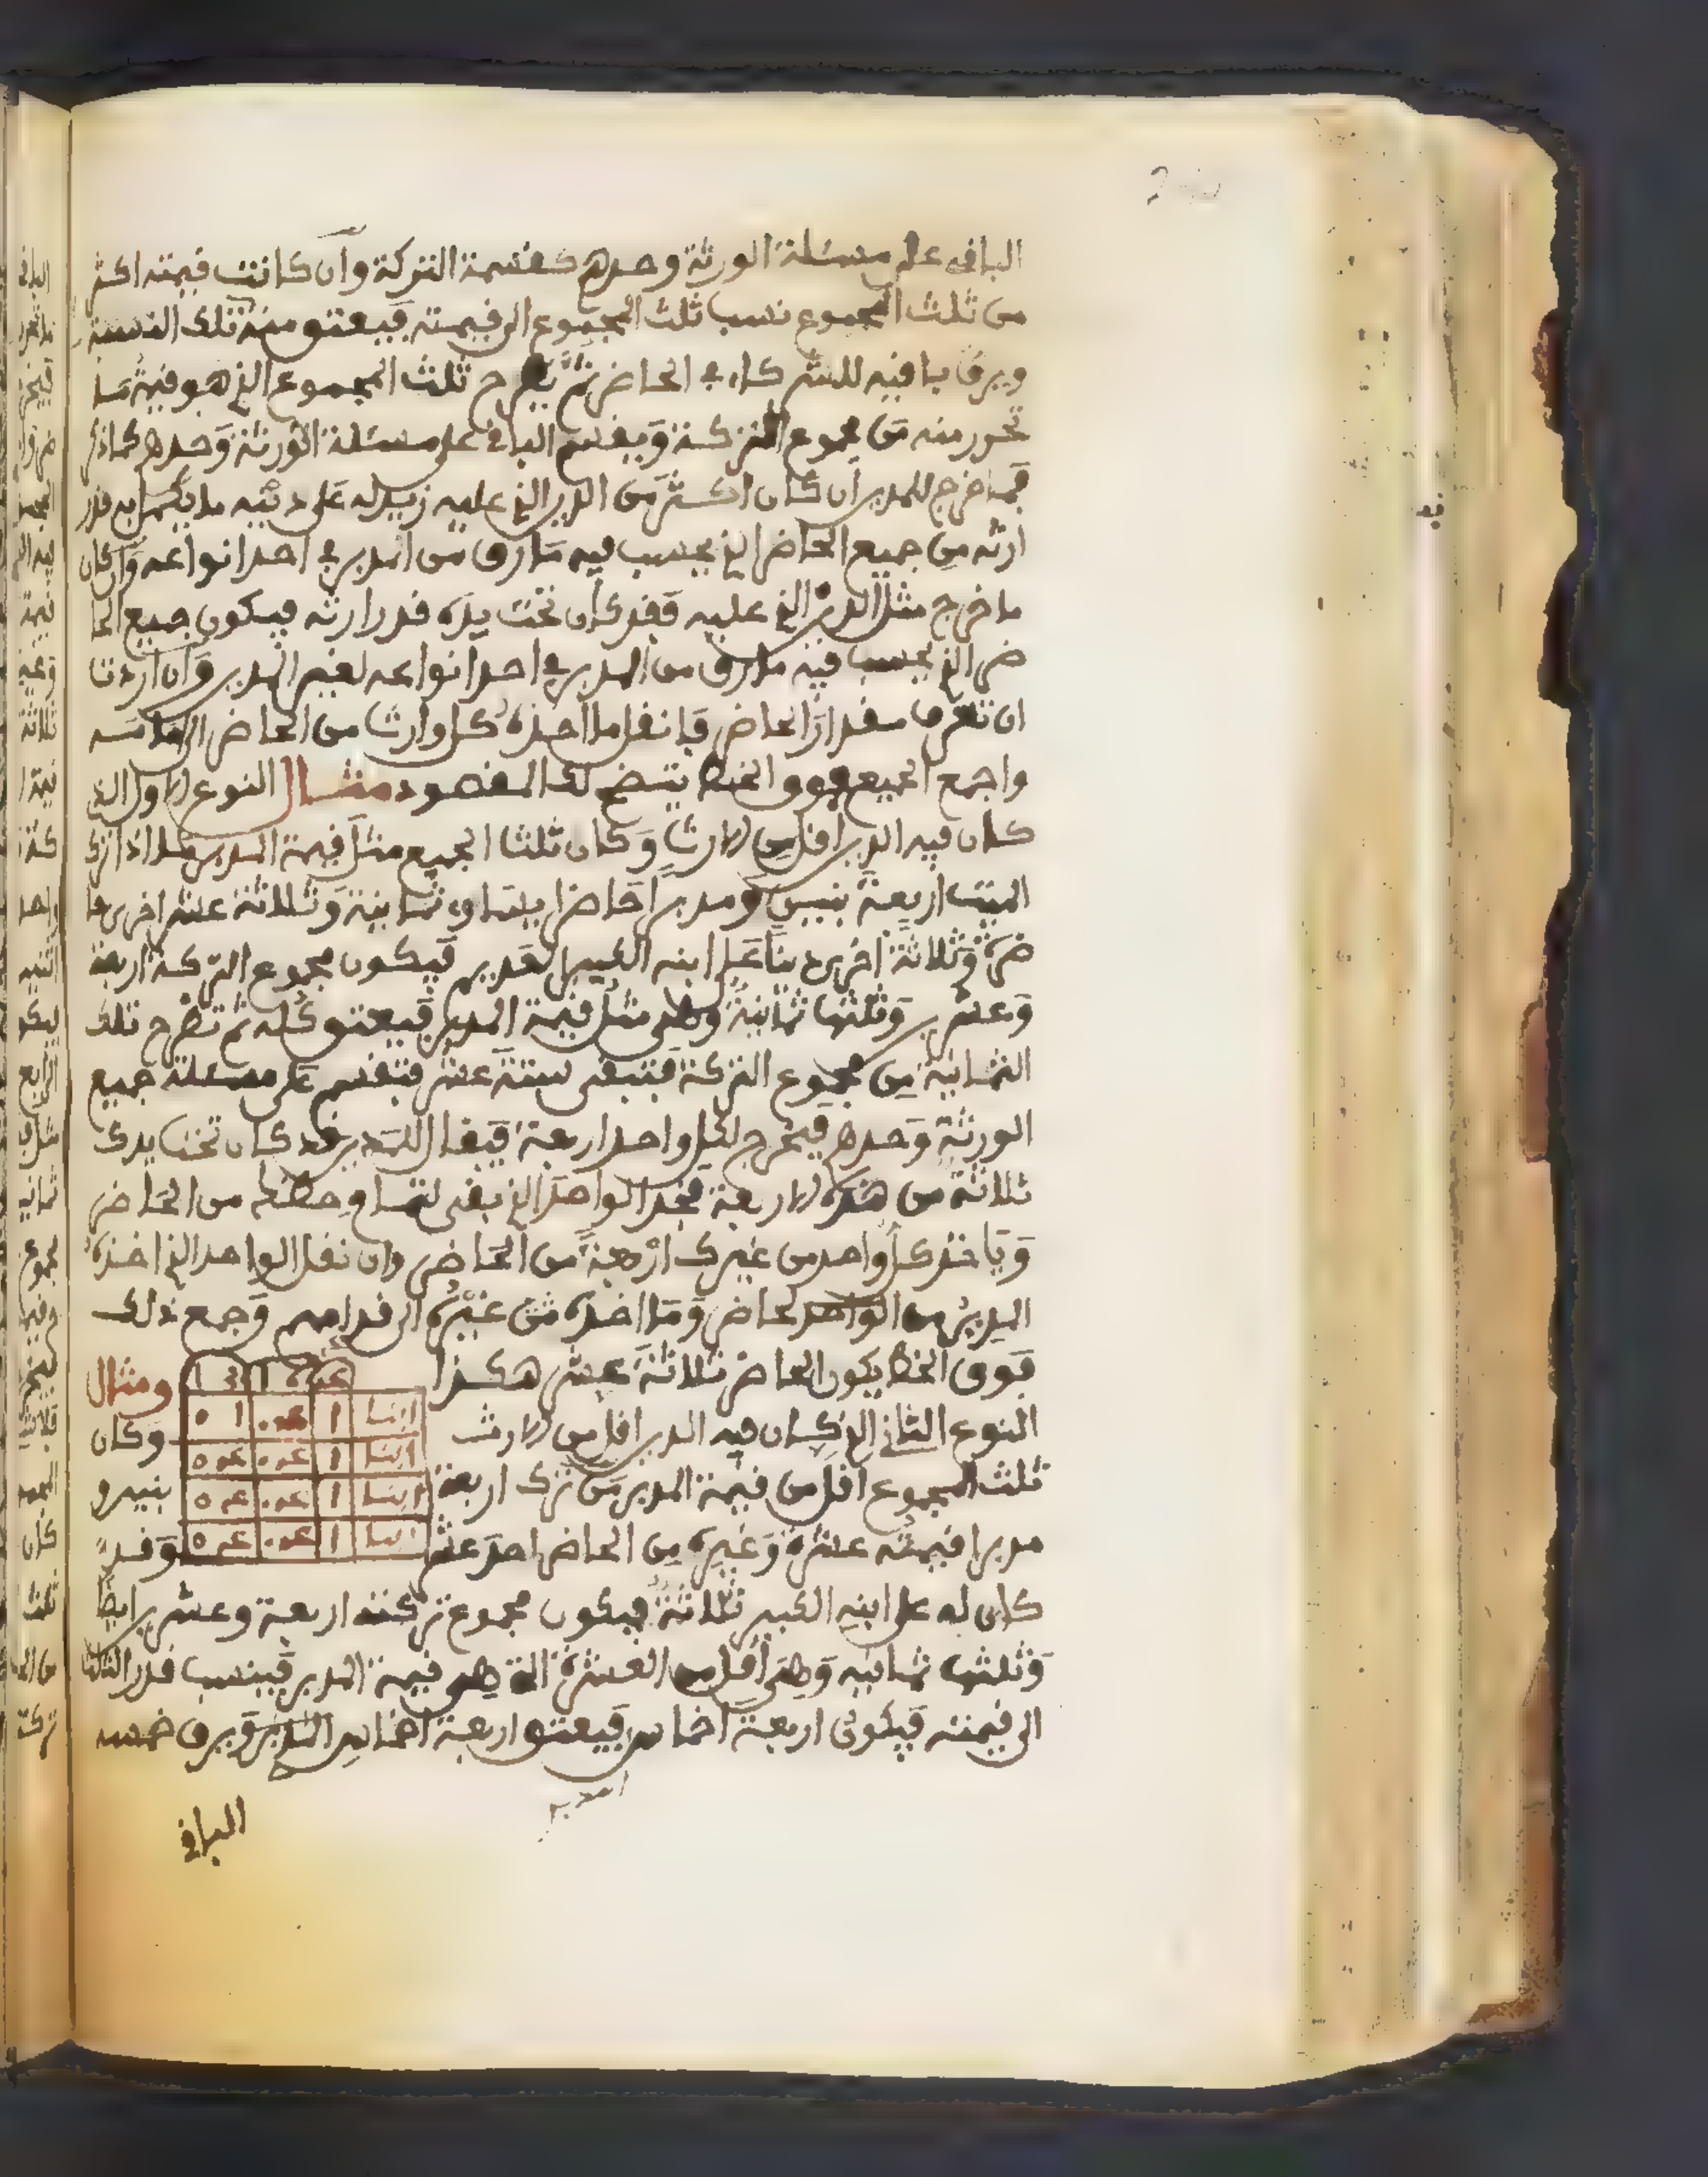 الباقي على مسئلة الورثة وحدهم كقسمة التركة وان كانت قيمته اكثر
من ثلث المجموع نسب ثلث المجموع الى قيمته فيعتق منه تلك النسبة
ويرق باقيه للشركاء في الحاضر ثم يطرح ثلث المجموع الذي هو قيمة ما
تحرر منه من مجموع التركة ويقسم الباقي على مسئلة الورثة وحدهم كما ذكر
فما خرج للمدير ان كان اكثر من الدين الذي عليه زيد له على دينه ما يكمل به قدر
ارثه من جميع الحاضر الذي يحسب فيه ما رق من المدبر في احد انواعه وان كان
ما خرج مثل الدين الذي عليه فقد كان تحت يده قدر ارثه فيكون جميع الحا
ضر الذي يحسب فيه ما رق من المدبر في احد انواعه لغير المدير وان اردت
ان تعرف مقدار الحاضر فانقل ما اخذه كل وارث من الحاضر الى قدامه
واجمع الجميع فوق الخط يتضح لك المقصود مثال النوع الاول الذي
كان فيه الدين اقل من الارث وكان ثلث الجميع مثل قيمة المدبر ما اذا ترك
الميت اربعة بنين ومدبرا حاضرا يساوي ثمانية وثلاثة عشر اخرى حا
ضرة وثلاثة اخرى دينا على ابنه الكبير المدير فيكون مجموع التركة اربعة
وعشرين وثلثها ثمانية وهي مثل قيمة المدبر فيعتق كله ثم تطرح تلك
الثمانية من مجموع التركة فتبقى ستة عشر فتقسم على مسئلة جميع
الورثة وحدهم فيخرج لكل واحد اربعة فيقال للمدير قد كان تحت يدك
ثلاثة من هذه الاربعة فخذ الواحد الذي بقي لتمام حظك من الحاضر
وياخذ كل واحد من غيرك اربعة من الحاضر وان نقل الواحد الذي اخذه
المدير من الحاضر وما اخذه من غيره الى قدامهم وجمع ذلك
فوق الخط يكون الحاضر ثلاثة عشر هكذا ومثال
النوع الثاني الذي كان فيه الدين اقل من الارث وكان
ثلث المجموع اقل من قيمة المدبر من ترك اربعة بنين و
مدبرا قيمته عشرة وغيره من الحاضر احد عشر وقد
كان له على ابنه الكبير ثلاثة فيكون مجموع تركته اربعة وعشرين ايضا
وثلثها ثمانية وهي اقل من العشرة التي هي قيمة المدبر فينسب قدر الثلث
الى قيمته فيكون اربعة اخماس فيعتق اربعة اخماس المدبر ويرق خمسه
الباقي